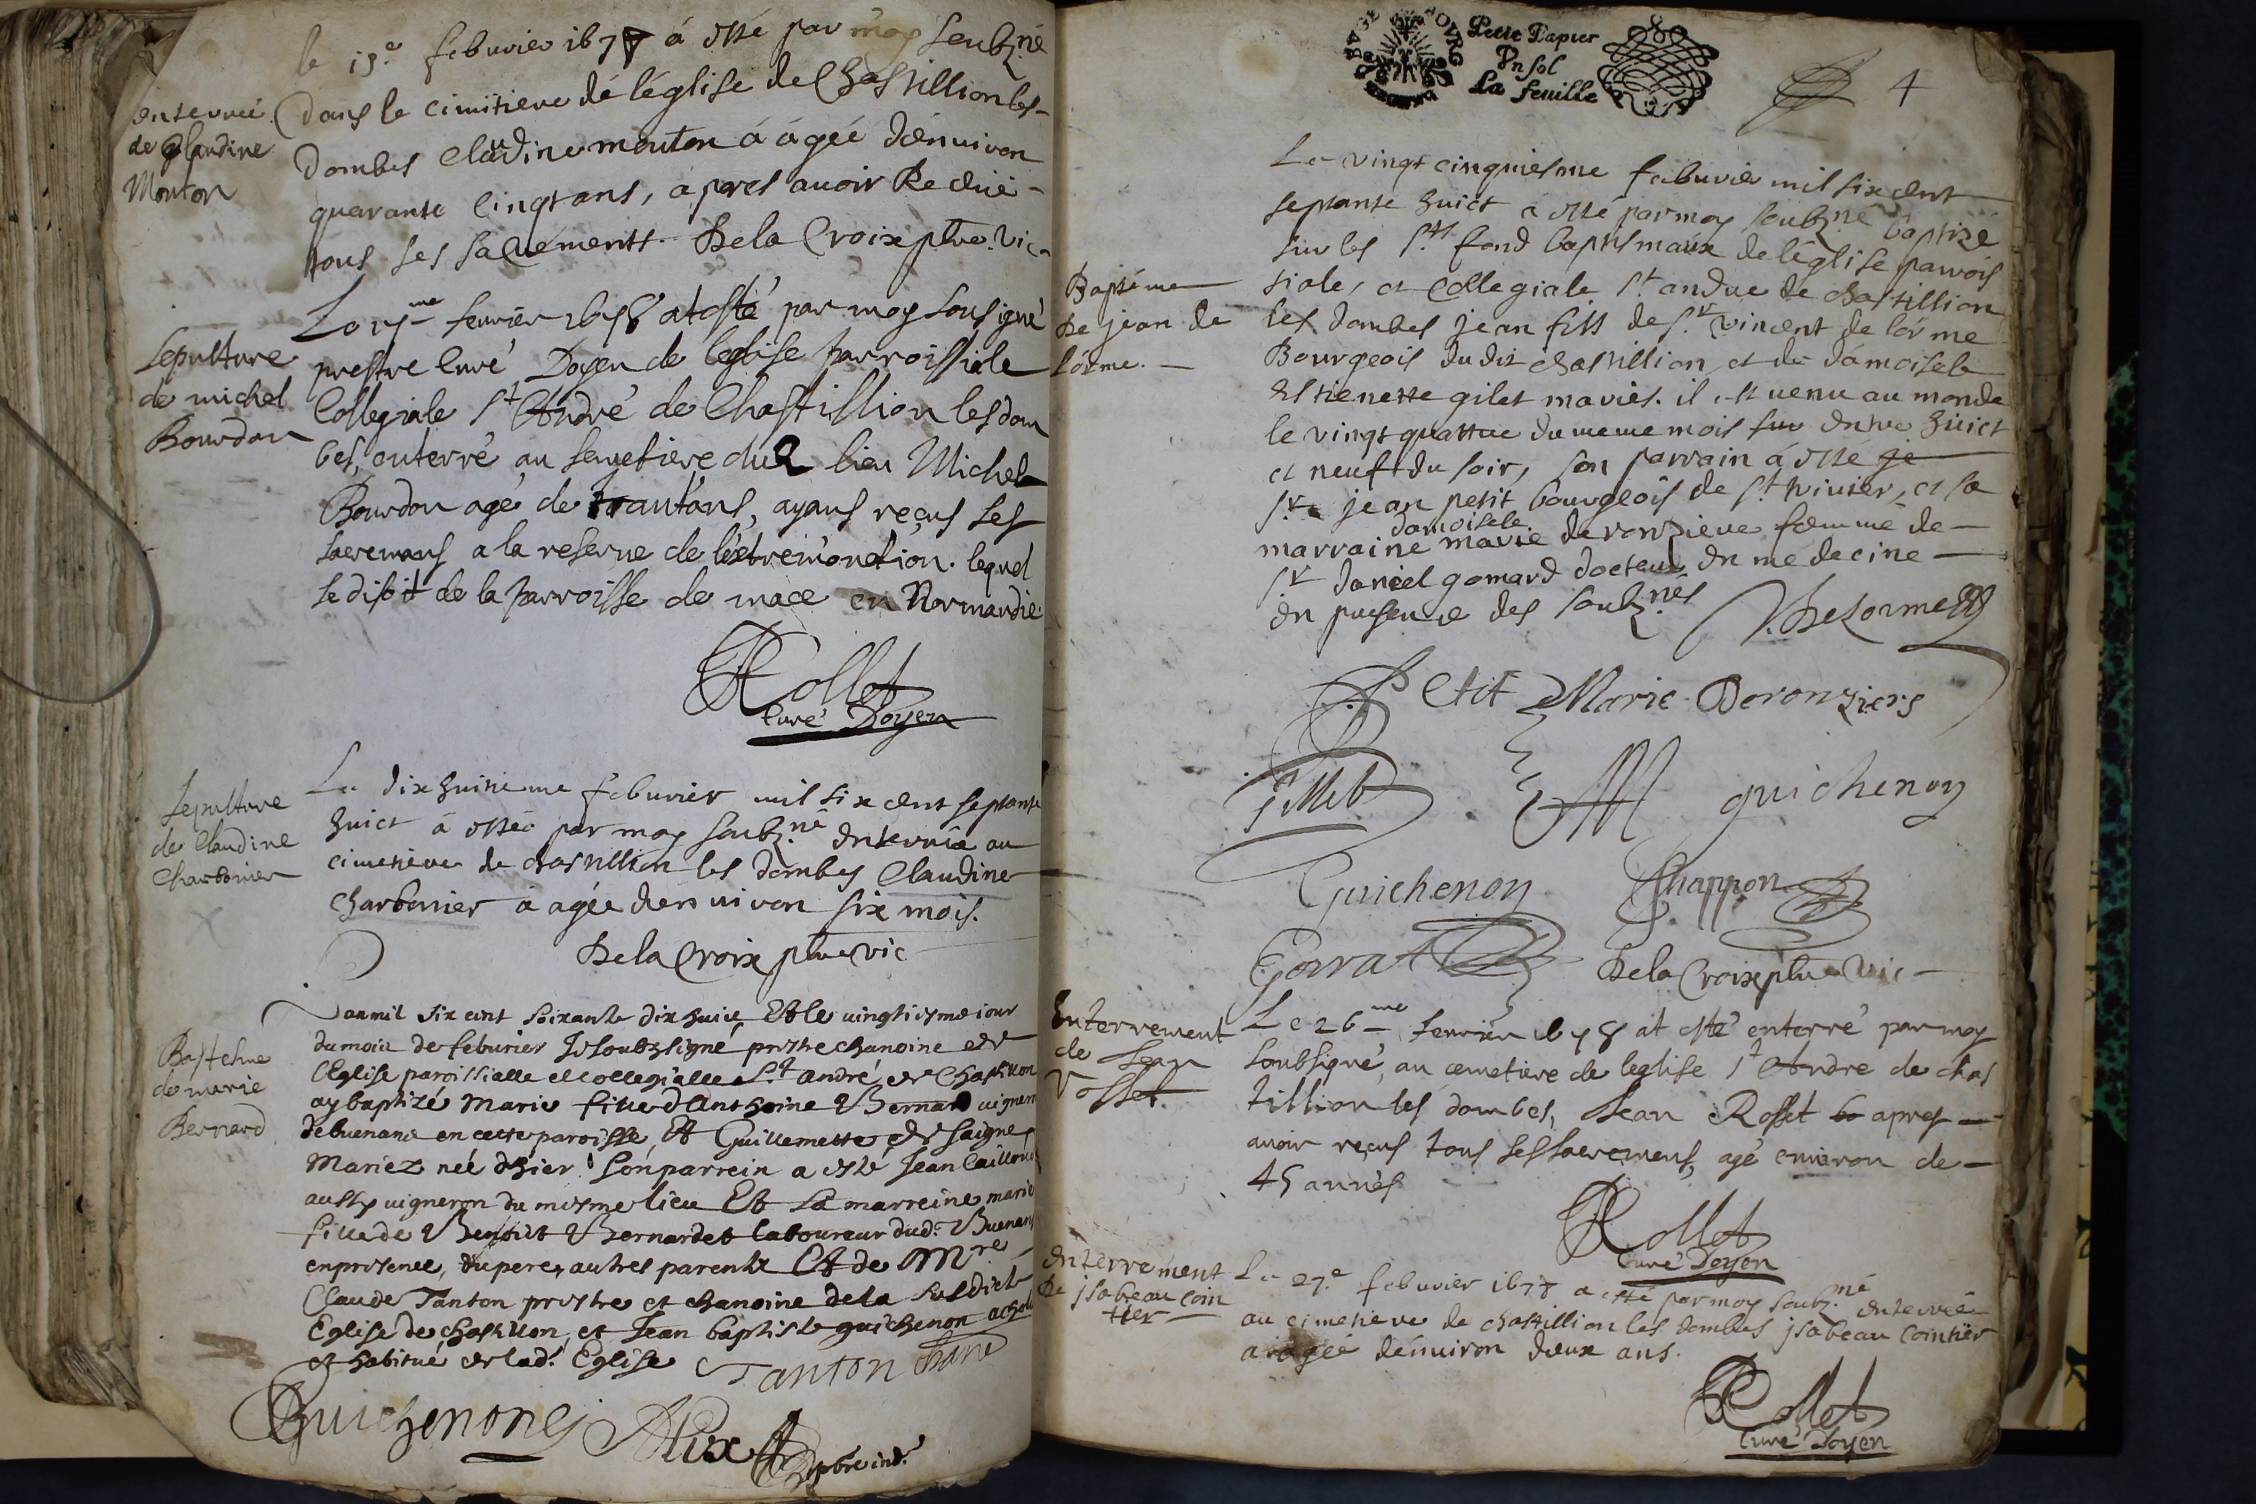 le 15.e febuvier 1678 á esté par moy soubz.né
enterreé
de Claudine
Mouton
dans le cimitiere dé léglise de Chastillion les
Dombes Claudine mouton á ágeé denuiron
quarante cinqt ans, apres auoir Receüe
tous ses sacrements. De la Croix ptre. vic.
Sepulture
de michel
Bourdon
feurier 1678 at esté par moy sousigné
prestre Curé Doyen de leglise parroissiale
Collegiale St André de Chastillion les dom
bes, enterré au semetiere du lieu Michel
Bourdon agé de ans, ayans reçus ses
sacremans a la reserue de lextremonction. lequel
se disoit de la parroisse de mace en Normandie.
Rollet
Curé Doyen
Sepulture
de Claudine
Charbonier
Le dix huitieme febuvier mil six cent septante
huict á estée par moy soubz.né enterrée au
cimetiere de chastillion les dombes Claudine
Charbonier a agée denuiron six mois.
De la Croix ptre vic
Baptesme
de marie
Bernard
Lan mil six cent soixante dix huict Et le vingtiesme iour
du mois de feburier Je soubzsigné prestre chanoine de
l'Eglise paroissialle et collegialle St André de Chastillon
ay baptizé Marie fille d'Anthoine Bernard vigneron
de buenane en cette paroisse Et Guillemette de saignes
Mariez neé dhier. Son parrein a esté Jean Caillon
aussy vigneron du mesme lieu Et La marreine marie
fille de Benoist Bernardet laboureur dud. Buenans
en presence, du pere, autres parents Et de Mre
Claude Tanton prestre et chanoine de la susdicte
Eglise de chastillon, et Jean baptiste guichenon acho
et habitué de lad. Eglise Tanton chane
Guichenon Alix
ptre ind.
Petit Papier
Vn sol
La feuille
4
Baptéme
De jean de
Lórme.
Le vingt cinquiesme febuvier mil six cent
septante huict a esté par moy soubz.né baptizé
sur les Sts fond baptismaux de léglise parrois
siale, et Collegiale St andre de chastillion
les dombes jean fils de Sr vincent de lórme
Bourgeois du dit chastillion, et de dámoisele
Estienette gilet mariés. il est venu au monde
le vingt quattre du meme mois sur entre huict
et neuf du soir, son parrain á esté je
Sr jean petit bourgeois de St trivier, et sa
damoisele
marraine marie deronziere femme de
Sr daniel gomard docteur en medecine
en presence des soubz.nés V. DeLorme
Petit Marie Deronziers
Gillet M guichenon
Guichenon Chappon
Gorrat De la Croix ptre Vic
Enterrement
de Jean
Rosset.
Le 26me feurier 1678 at esté enterré par moy
soubsigné, au cemetiere de leglise St Andre de chas
tillion les dombes, Jean Rosset apres
auoir reçus tous ses sacremens, agé enuiron de
45 annés
Rollet
Curé Doyen
Enterrement
De jsabeau Coin
tier
Le 27.e febuvier 1678 a esté par moy soubz.né enterrée
au cimetiere de chastillion les dombes jsabeau Cointier
a agée dénuiron deux ans.
Rollet
Curé Doyen